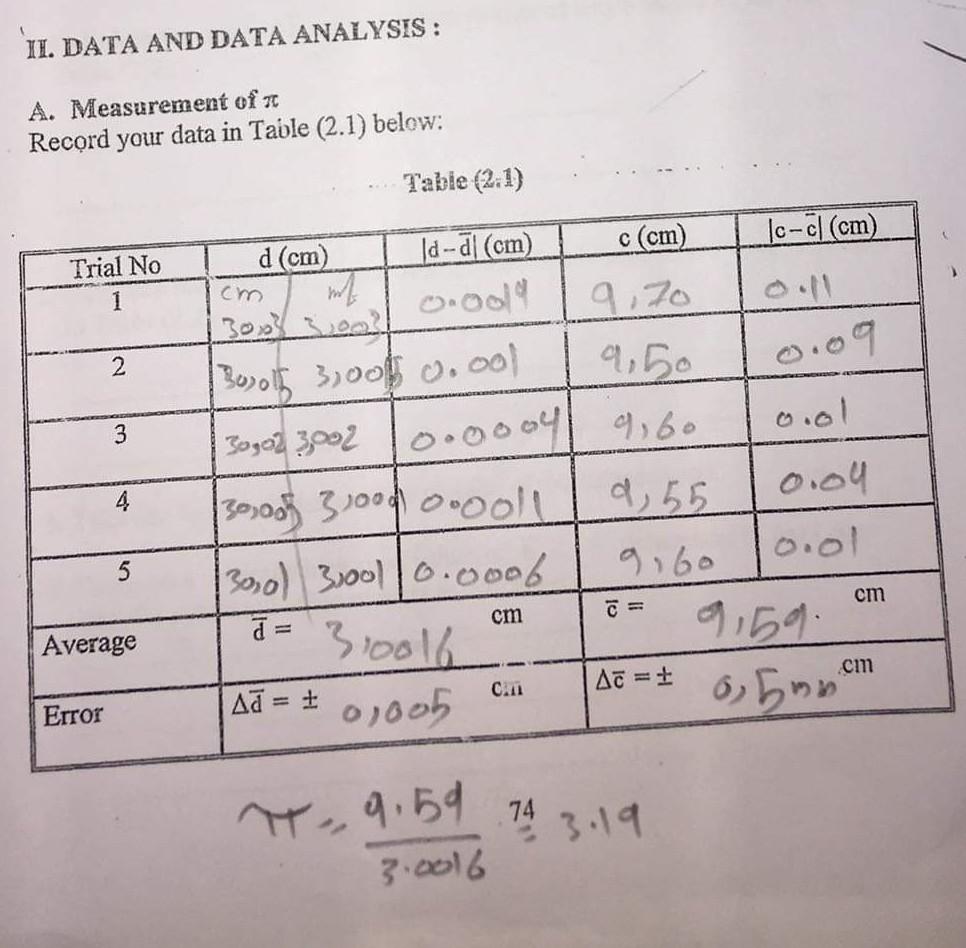 II. DATA AND DATA ANALYSIS :
A. Measurement of π
Record your data in Table (2.1) below:
Table (2.1)
Trial No d (cm) |d-d̅| (cm) c (cm) |c-c̅| (cm)
1 cm 30,03 3,003 0.0014 9,70 0.11
2 30,015 0.001 9,50 0.09
3 30,02 3,002 0.0004 9,60 0.01
4 30,005 0.0011 9,55 0.04
5 30,01 3,001 0.0006 9,60 0.01
Average d̅ = 3,0016 cm c̅ = 9,59. cm
Error Δd̅ = ± 0,005 cm Δc̅ = ± 0,5 cm
π = 9.59 / 3.0016 = 3.19
74